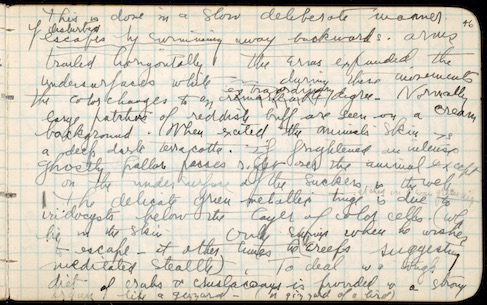 This is done in a slow deliberate manner.
46
If disturbed
escapes by swimming away backwards. arms
trailed horizontally the arms expanded, the
undersurfaces white during these movements
the color changes to an extraordinary degree. Normally
large patches of reddish buff are seen on a cream
background. When excited the animals skin is
a deep dark terracotta. If frightened an intense
ghostly pallor passes right over the animal except
on the undersurface of the suckers & the web
The delicate green metallic tinge is due to
iridocysts below the layer of color cells (wh
lie in the skin Only swims when he wishes
to escape - at other times he creeps suggesting
meditated stealth). To deal w. a tough
diet of crabs & crustaceans is provided w. a strong
like a gizzard - gizzard of a bird